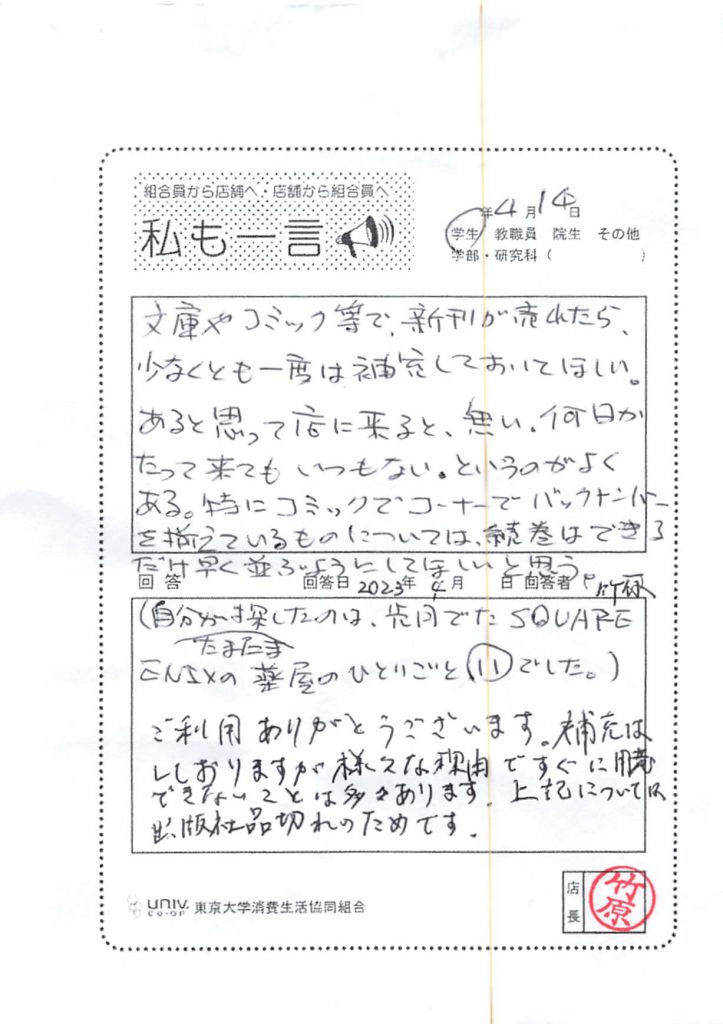 組合員から店舗へ・店舗から組合員へ
私も一言
年4月14日
学生 教職員 院生 その他
学部・研究科( )
文庫やコミック等で、新刊が売れたら、
少なくとも一度は補充しておいてほしい。
あると思って店に来ると、無い。何日か
たって来てもいつもない。というのがよく
ある。特にコミックでコーナーでバックナンバー
を揃えているものについては、続巻はできる
だけ早く並ぶようにしてほしいと思う。
回答 回答日 2023年4月 日 回答者 竹原
(自分が探したのは、先月でた SQUARE
たまたま
ENIXの薬屋のひとりごと 11 でした。)
ご利用ありがとうございます。補充は
しておりますが様々な理由ですぐに用意
できないことは多々あります。上記については
出版社品切れのためです。
UNIV. CO-OP 東京大学消費生活協同組合
店長 竹原